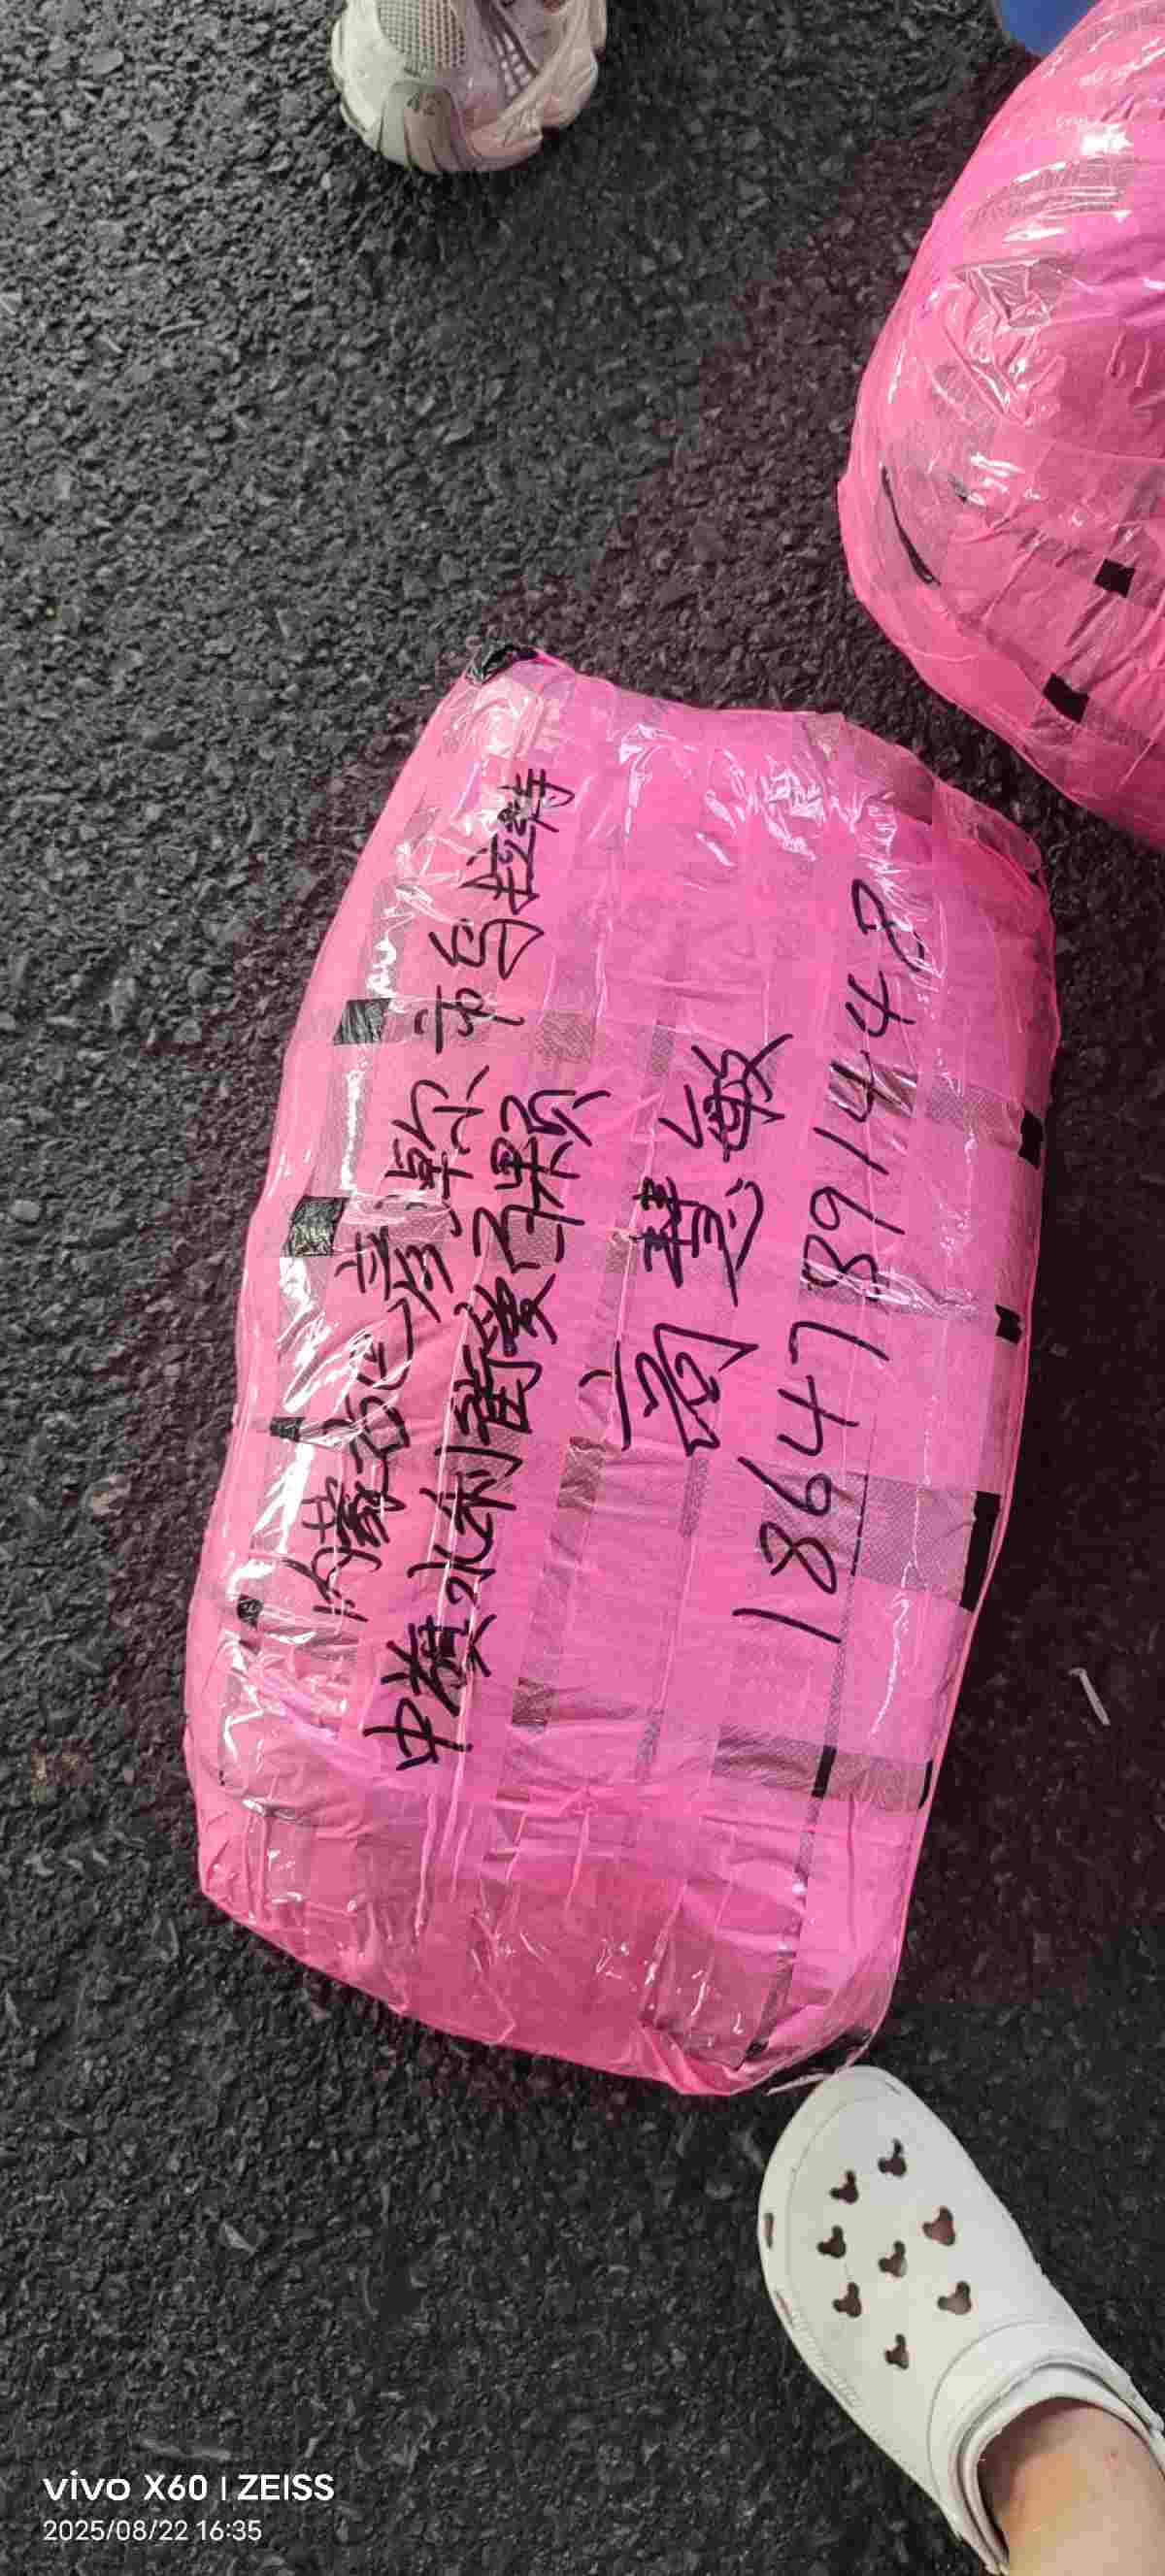 内蒙古巴彦淖尔市乌拉特
中旗水利街爱子果
高慧敏
18647891448
vivo X60 | ZEISS
2025/08/22 16:35